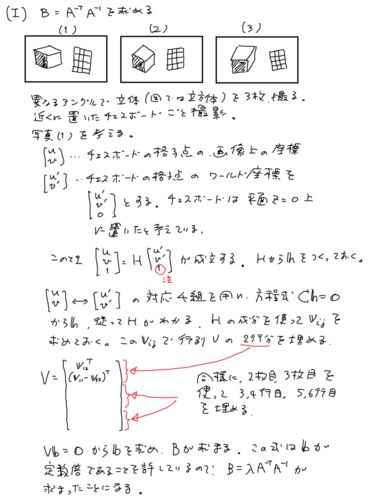 (I) B = A⁻ᵀA⁻¹ を求める
(1) (2) (3)
異なるアングルで立体(図では立方体)を3枚撮る。
近くに置いたチェスボードごと撮影。
写真(1)を考える。
[u v] … チェスボードの格子点の画像上の座標
[u' v'] … チェスボードの格子点のワールド座標を
[u' v' 0] とする。チェスボードは平面 z=0 上
に置いたと考えている。
このとき [u v 1] = H [u' v' 1] が成立する。Hからhをつくっておく。
注
[u v] ↔ [u' v'] の対応4組を用い、方程式 Ch=0
からh, 従ってHがわかる。Hの成分を使ってVijを
求めておく。このVijで行列Vの2行分を埋める。
V = [V12ᵀ (V11-V22)ᵀ]
同様に、2枚目、3枚目を
使って3,4行目、5,6行目
を埋める。
Vb=0からbを求め、Bが求まる。この式はbが
定数倍であることを許しているので、B=λA⁻ᵀA⁻¹が
求まったことになる。